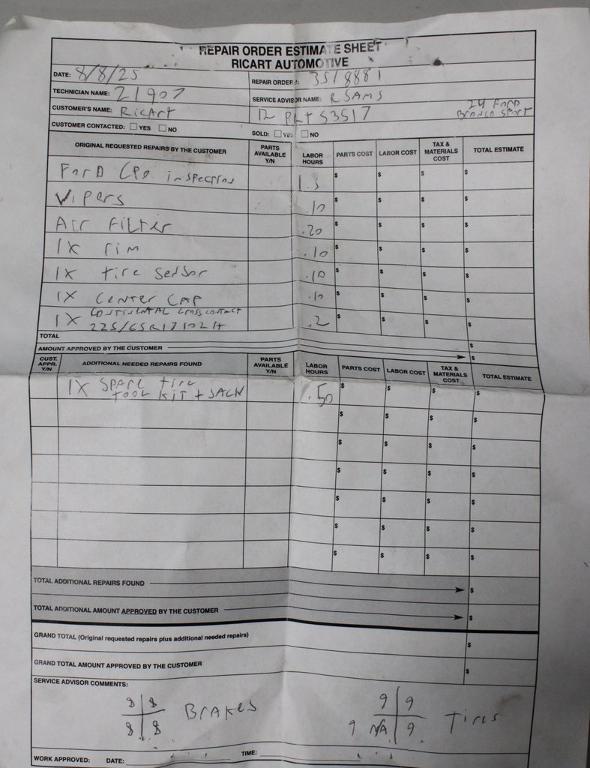 REPAIR ORDER ESTIMATE SHEET
RICART AUTOMOTIVE
DATE: 8/8/25
REPAIR ORDER #: 3518881
TECHNICIAN NAME: 21907
SERVICE ADVISOR NAME: RSAMS
CUSTOMER'S NAME: RicArt
PLT S3517
24 Ford
Bronco Sport
CUSTOMER CONTACTED: YES NO
SOLD: YES NO
ORIGINAL REQUESTED REPAIRS BY THE CUSTOMER PARTS AVAILABLE Y/N LABOR HOURS PARTS COST LABOR COST TAX & MATERIALS COST TOTAL ESTIMATE
ForD CPO inspection 1.3 $ $ $ $
Wipers .10 $ $ $ $
Air Filter .20 $ $ $ $
1X rim .10 $ $ $ $
1X tire sensor .10 $ $ $ $
1X Center CAP .10 $ $ $ $
1X CONTINENTAL CrossContact
225/65R17 102H .2 $ $ $ $
TOTAL $
AMOUNT APPROVED BY THE CUSTOMER $
CUST. APPR. Y/N ADDITIONAL NEEDED REPAIRS FOUND PARTS AVAILABLE Y/N LABOR HOURS PARTS COST LABOR COST TAX & MATERIALS COST TOTAL ESTIMATE
1X Spare tire
tool kit + JACK .50 $ $ $ $
$ $ $ $
$ $ $ $
$ $ $ $
$ $ $ $
$ $ $ $
$ $ $ $
TOTAL ADDITIONAL REPAIRS FOUND $
TOTAL ADDITIONAL AMOUNT APPROVED BY THE CUSTOMER $
GRAND TOTAL (Original requested repairs plus additional needed repairs) $
GRAND TOTAL AMOUNT APPROVED BY THE CUSTOMER $
SERVICE ADVISOR COMMENTS:
8 8 9 9
8 8 BrAkes 9 NA 9 Tires
WORK APPROVED: DATE: TIME: